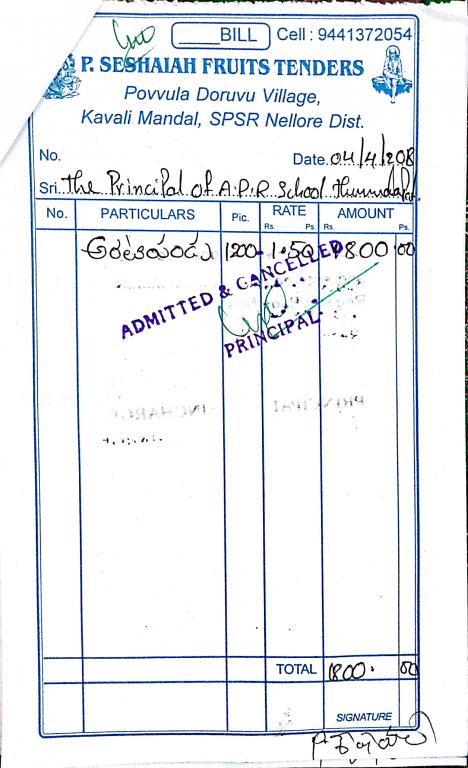 BILL Cell : 9441372054
P. SESHAIAH FRUITS TENDERS
Povvula Doruvu Village,
Kavali Mandal, SPSR Nellore Dist.
No. Date. 04/4/208
Sri. The Principal of A.P.R School
No. PARTICULARS Pic. RATE AMOUNT
Rs. Ps. Rs. Ps.
అరటిపండ్లు 1200 1.50 1800 00
ADMITTED & CANCELLED
PRINCIPAL
TOTAL 1800. 00
SIGNATURE